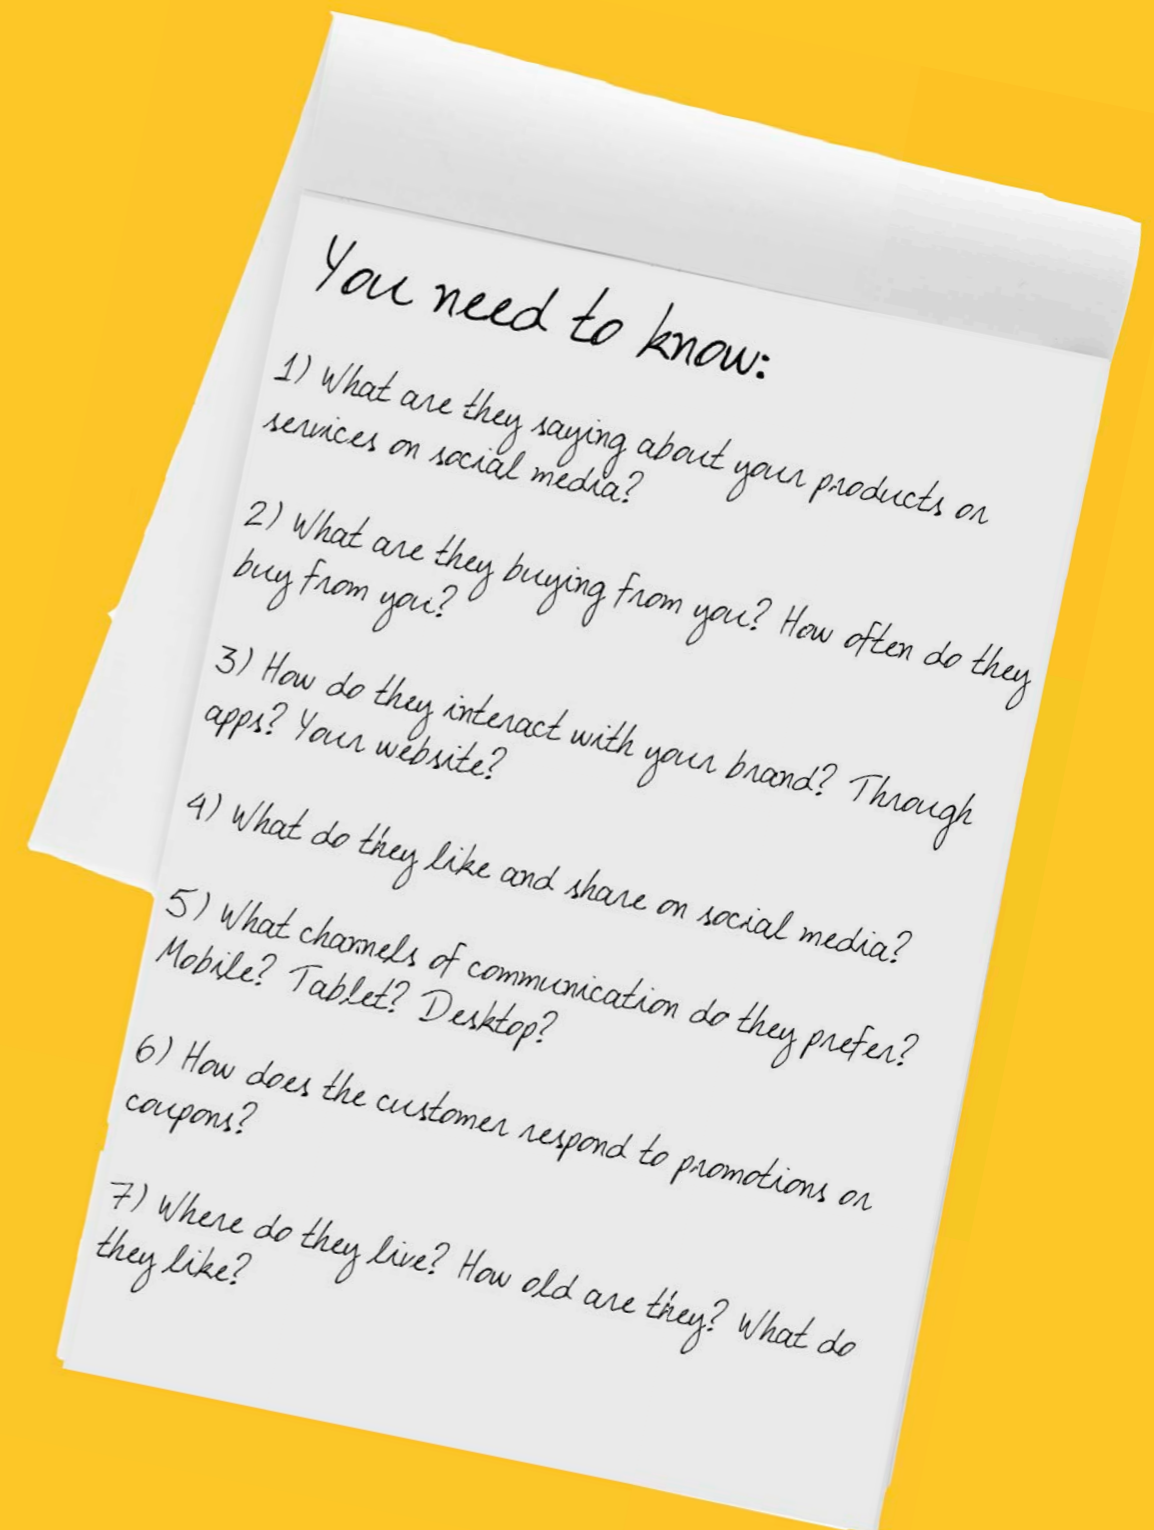 You need to know:
1) What are they saying about your products or
services on social media?
2) What are they buying from you? How often do they
buy from you?
3) How do they interact with your brand? Through
apps? Your website?
4) What do they like and share on social media?
5) What channels of communication do they prefer?
Mobile? Tablet? Desktop?
6) How does the customer respond to promotions or
coupons?
7) Where do they live? How old are they? What do
they like?